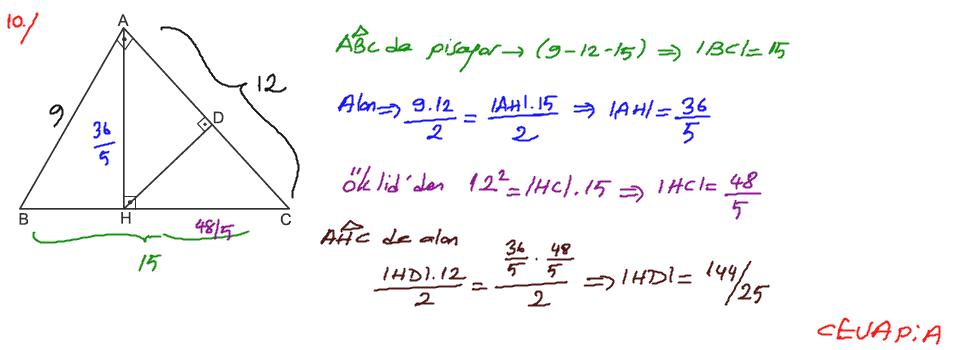 10./
A
9
12
36/5
D
B
H
C
48/5
15
ABC de pisagor → (9-12-15) ⇒ |BC| = 15
Alan ⇒ 9.12/2 = |AH|.15/2 ⇒ |AH| = 36/5
Öklid'den 12² = |HC|.15 ⇒ |HC| = 48/5
AHC de alan
|HD|.12/2 = 36/5 . 48/5 /2 ⇒ |HD| = 144/25
CEVAP:A